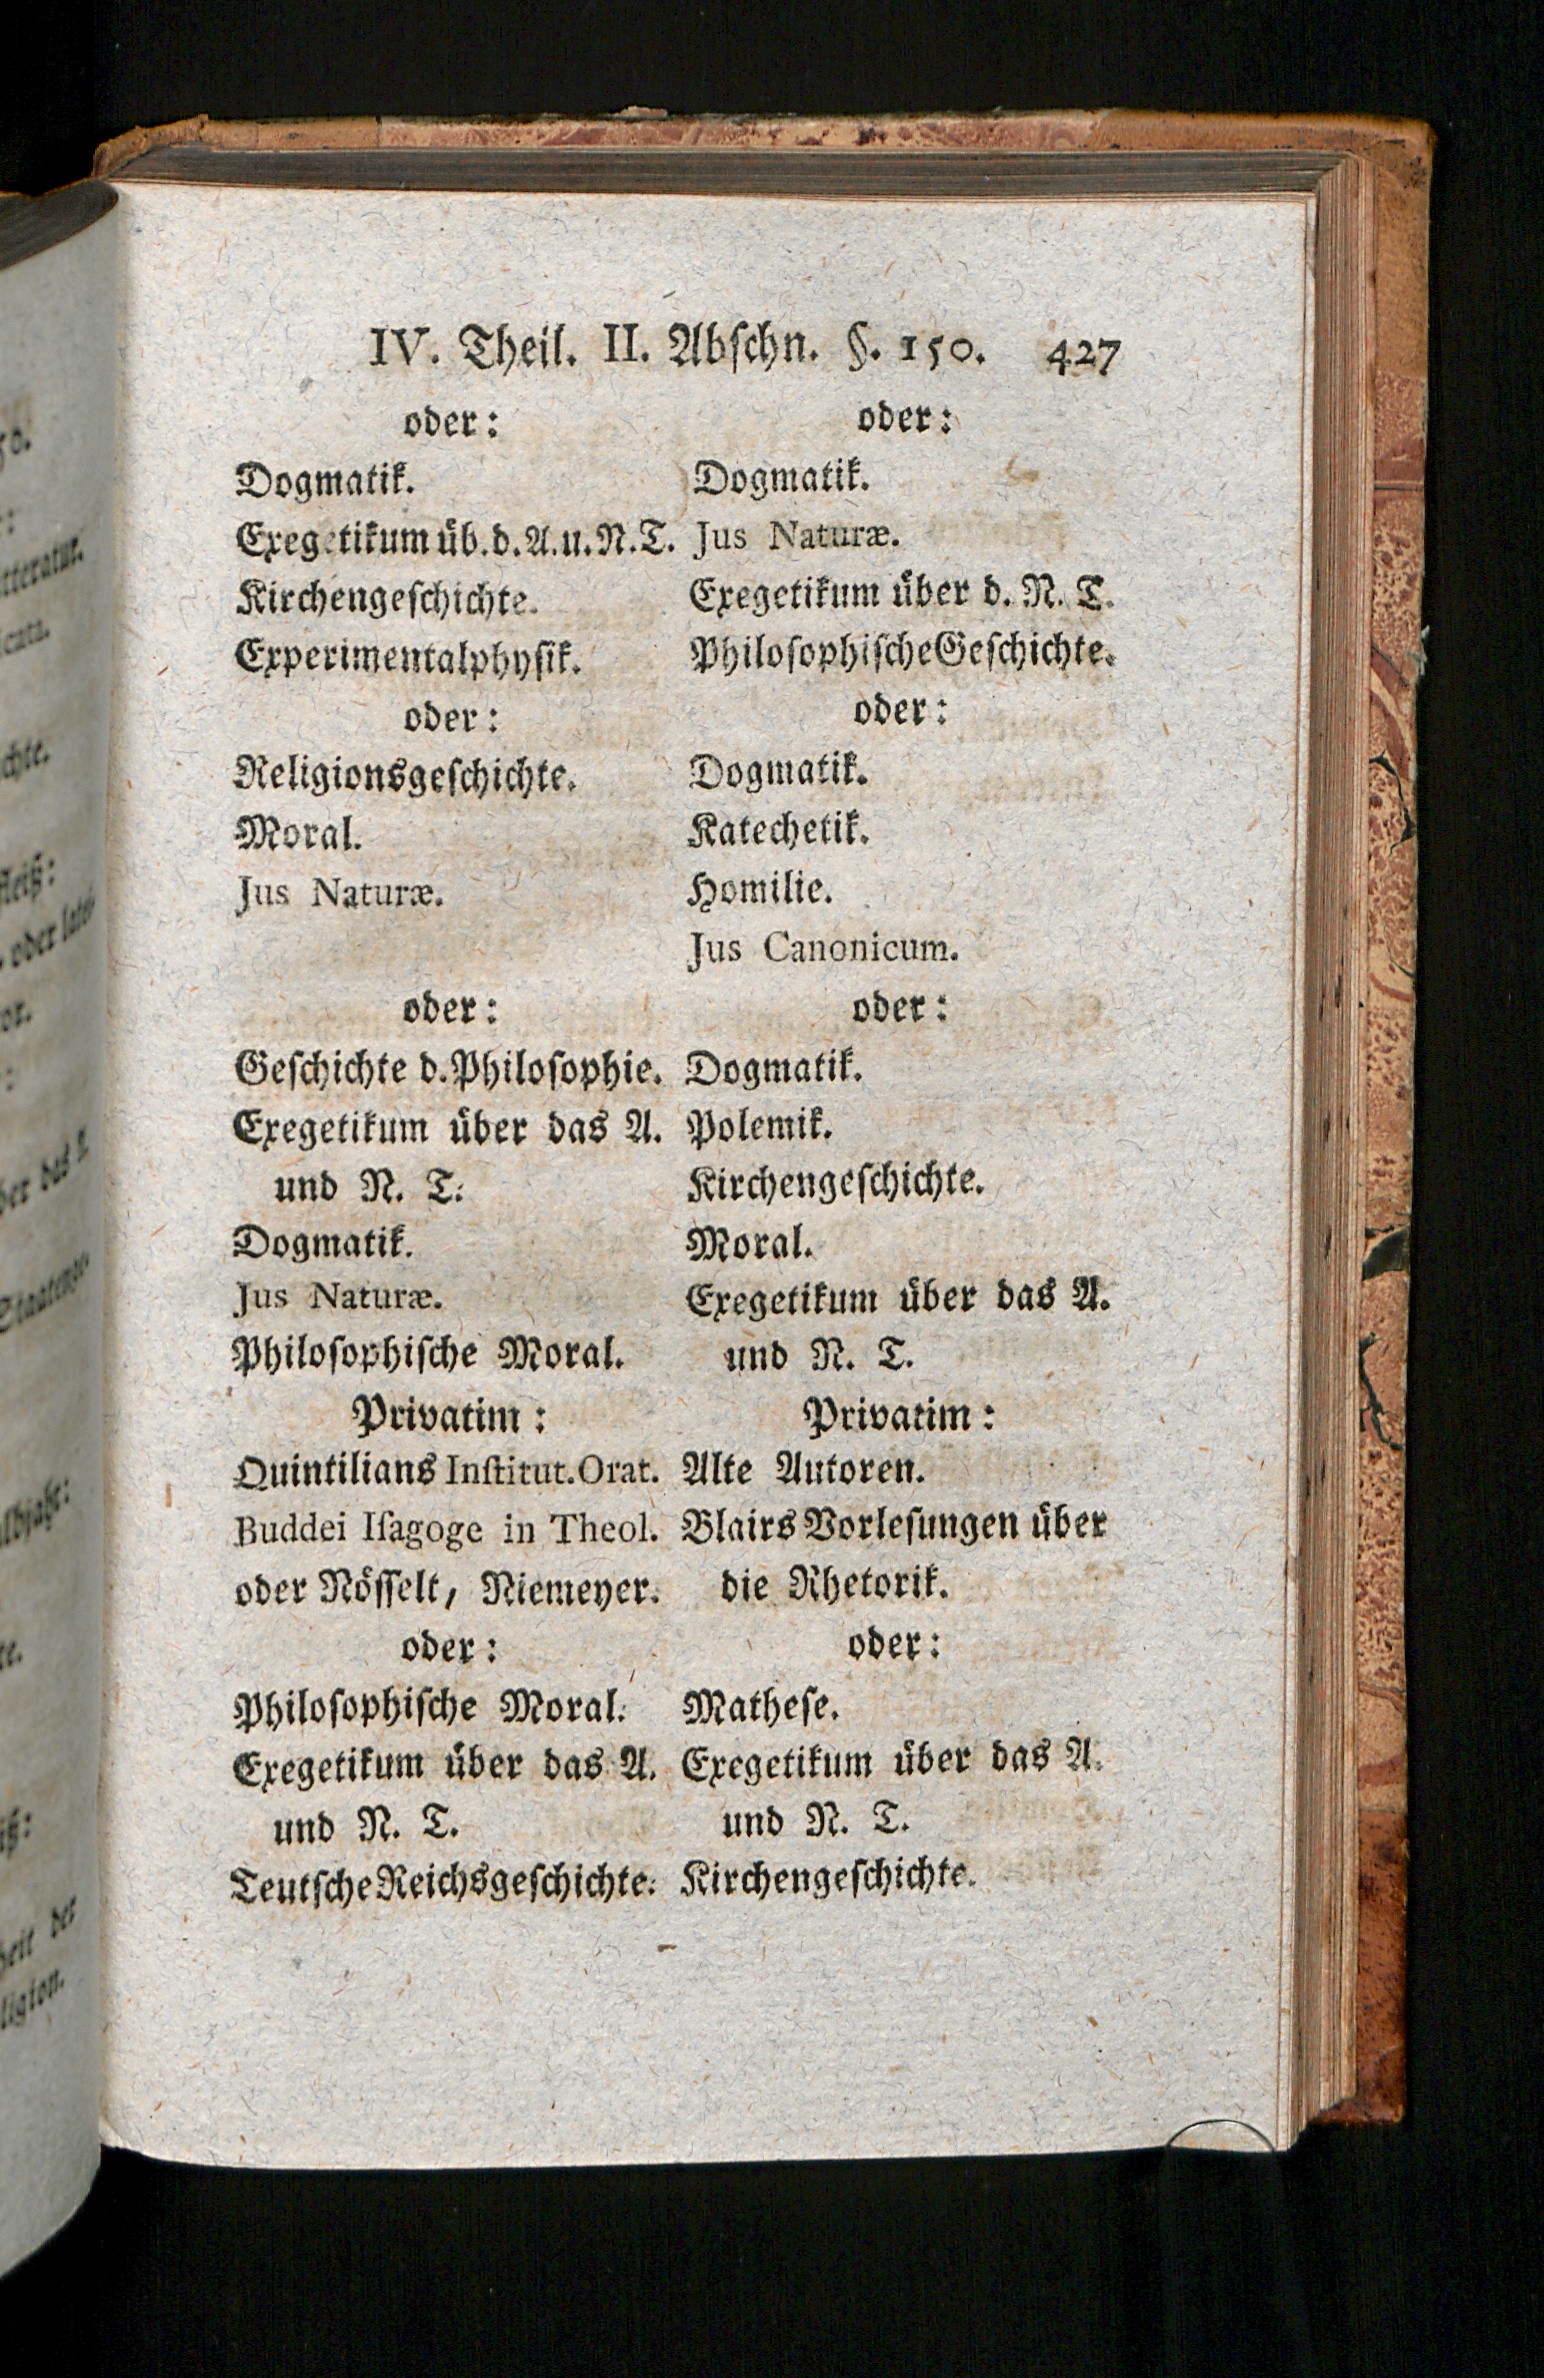 IV. Theil. II. Abschn. §. 150. 427
oder:
Dogmatik.
Exegetikum üb. d. A. u. N. T.
Kirchengeschichte.
Experimentalphysik.
oder:
Religionsgeschichte.
Moral.
Jus Naturæ.
oder:
Geschichte d. Philosophie.
Exegetikum über das A.
und N. T.
Dogmatik.
Jus Naturæ.
Philosophische Moral.
Privatim:
Quintilians Institut. Orat.
Buddei Isagoge in Theol.
oder Nösselt, Niemeyer.
oder:
Philosophische Moral.
Exegetikum über das A.
und N. T.
Teutsche Reichsgeschichte.
oder:
Dogmatik.
Jus Naturæ.
Exegetikum über d. N. T.
Philosophische Geschichte.
oder:
Dogmatik.
Katechetik.
Homilie.
Jus Canonicum.
oder:
Dogmatik.
Polemik.
Kirchengeschichte.
Moral.
Exegetikum über das A.
und N. T.
Privatim:
Alte Autoren.
Blairs Vorlesungen über
die Rhetorik.
oder:
Mathese.
Exegetikum über das A.
und N. T.
Kirchengeschichte.